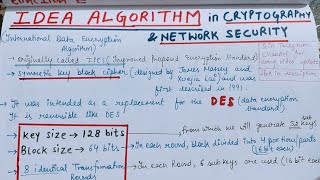 IDEA ALGORITHM in CRYPTOGRAPHY
& NETWORK SECURITY
(International Data Encryption
Algorithm)
→ originally called IPES (Improved Proposed Encryption Standard)
→ Symmetric key block cipher (designed by James Massey and
Xuejia Lai) and was
first described in 1991.
→ It was intended as a replacement for the DES (data encryption
standard).
It is reversible like DES
Key size → 128 bits
from which we will generate 52 sub keys
Block size → 64 bits
in each round, block divided into 4 portions/parts
(16 bit each)
8 identical Transformation
Rounds
in each Round, 6 sub keys are used (16 bit each)